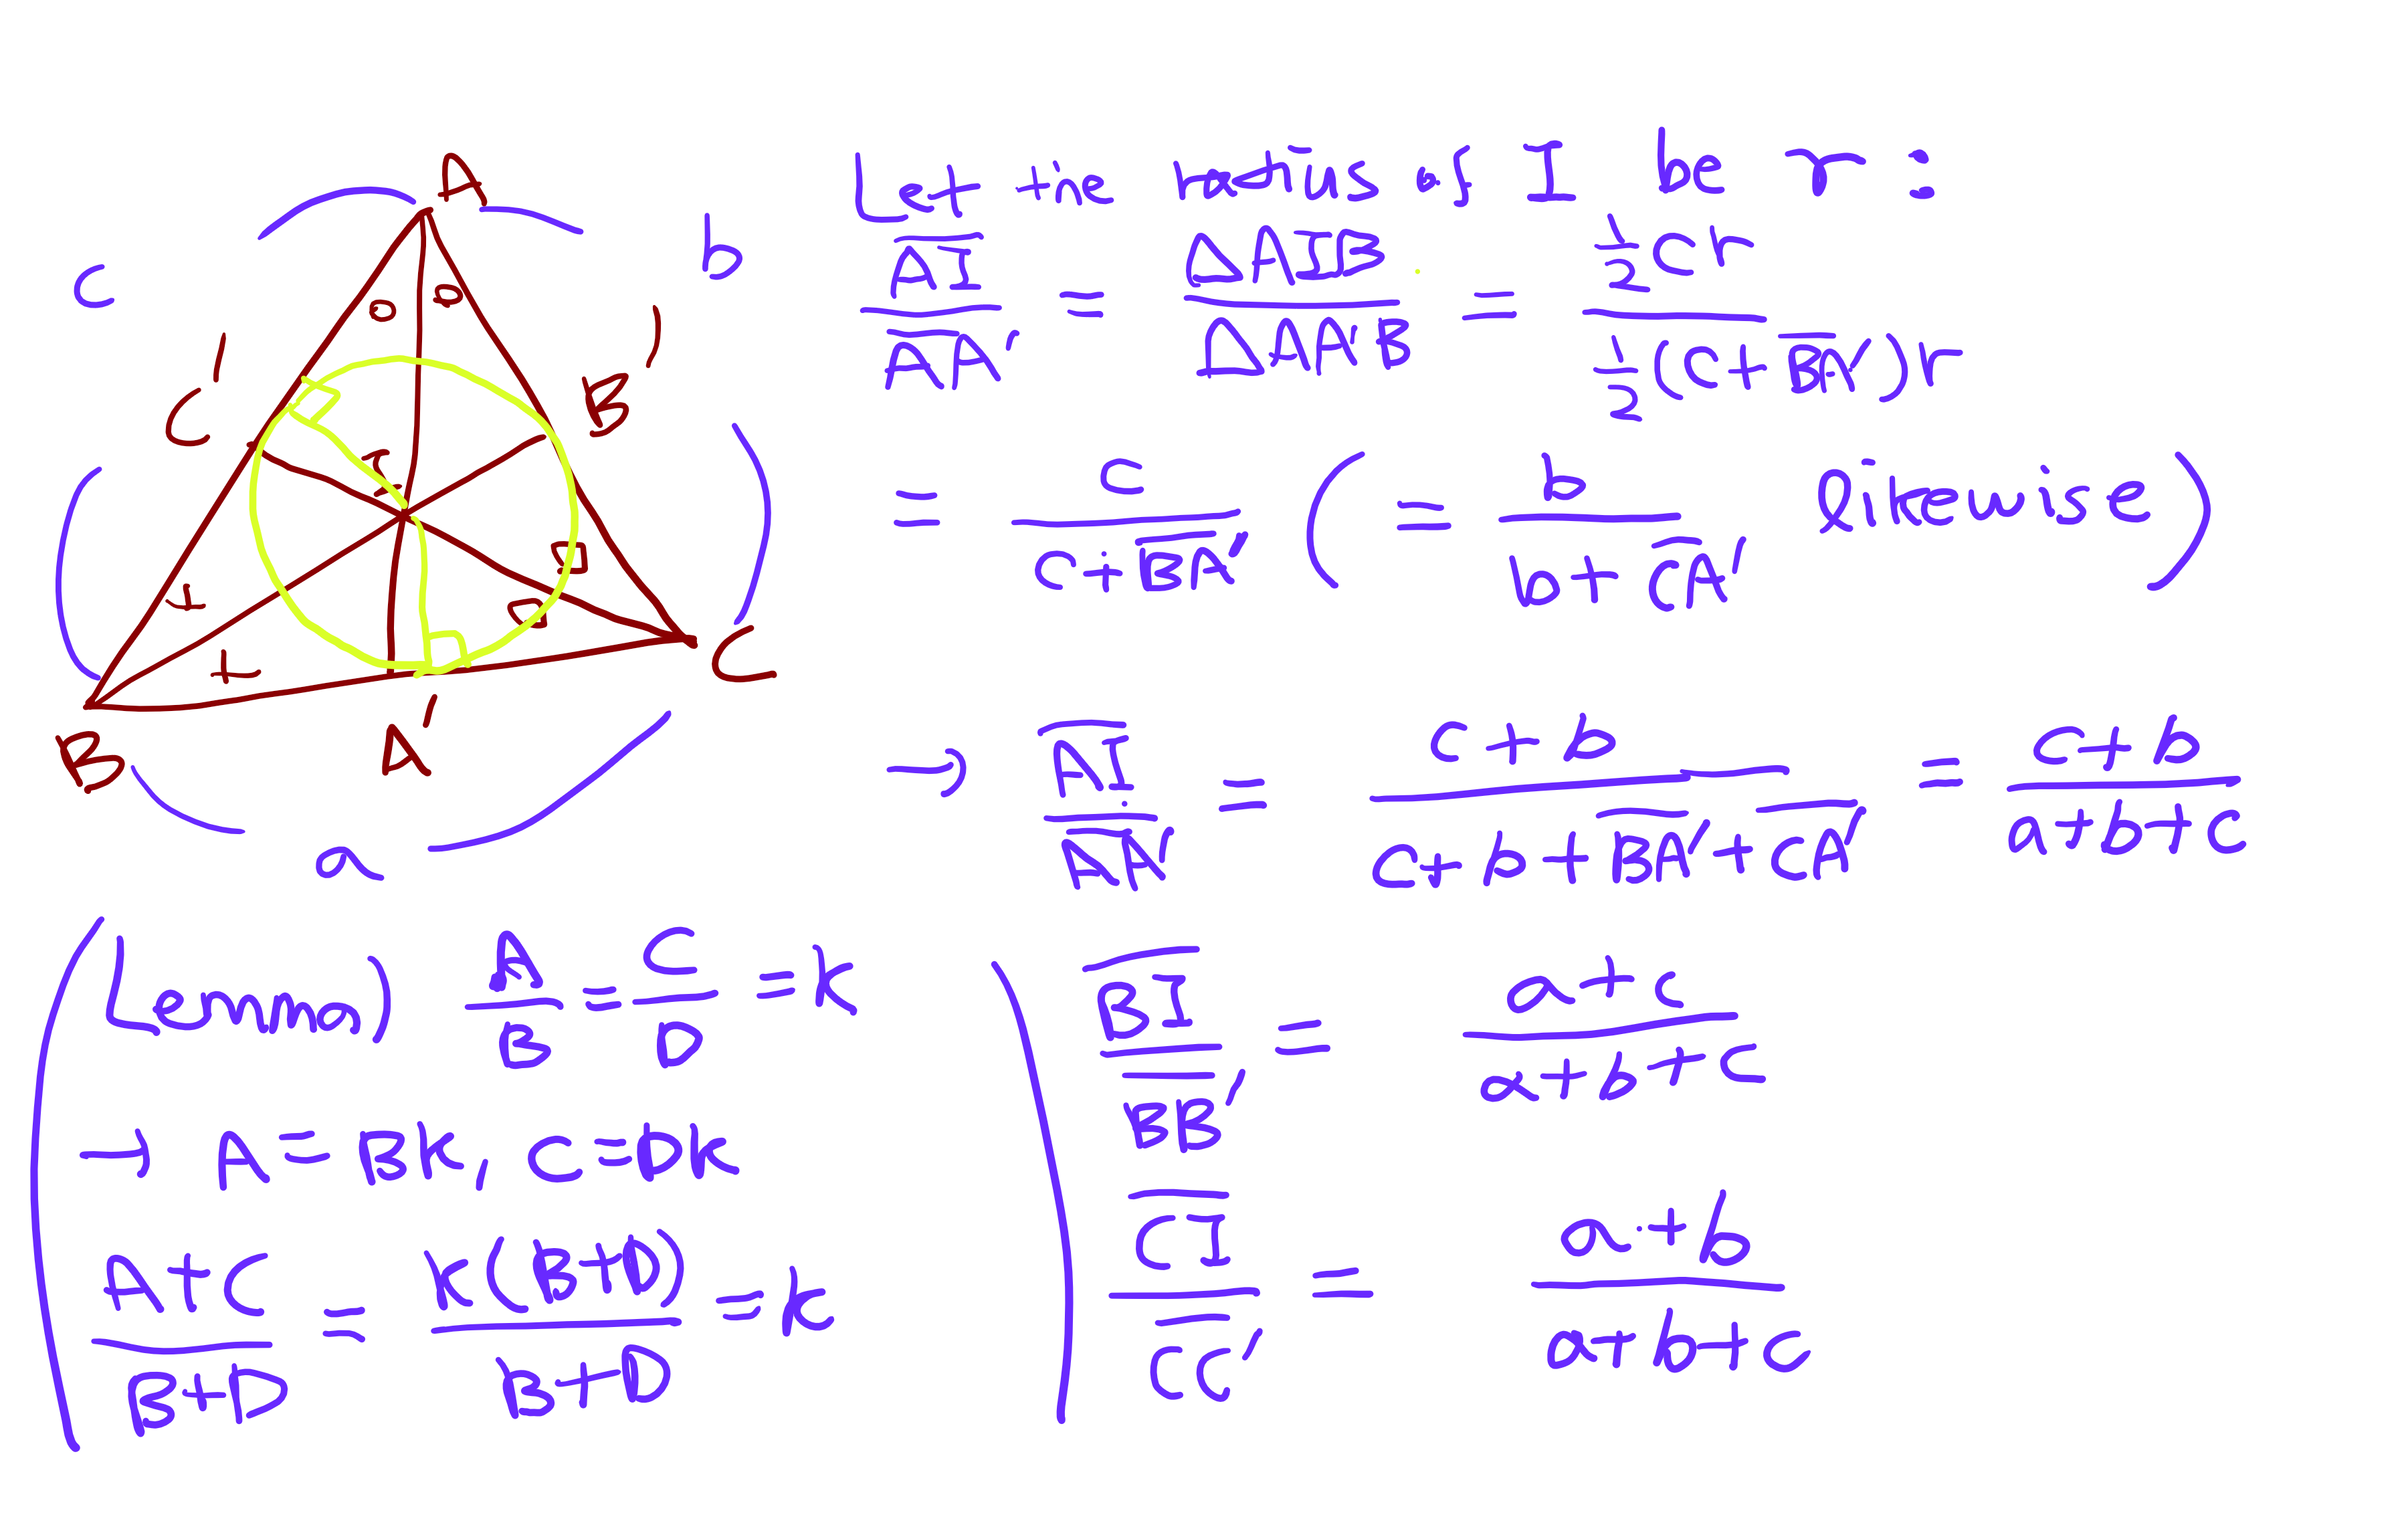 A
c
b
C'
B'
I
B
A'
C
a
Let the radius of I be r :
AI / AA' = △AIB / △AA'B = 1/2 cr / 1/2 (c + BA') r
= c / c + BA' ( = b / b + CA' likewise )
→ AI / AA' = c + b / c + b + BA' + CA' = c + b / a + b + c
(Lemma) A / B = C / D = k
→ A = Bk, C = Dk
A + C / B + D = k(B + D) / B + D = k
BI / BB' = a + c / a + b + c
CI / CC' = a + b / a + b + c